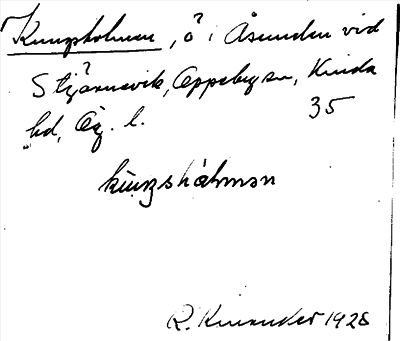 Kungsholmen, ö i Åsunden vid
Stjärnevik, Oppeby sn, Kinda
hd, Ög. l. 35
kuŋshòlmən
R. Kinander 1928